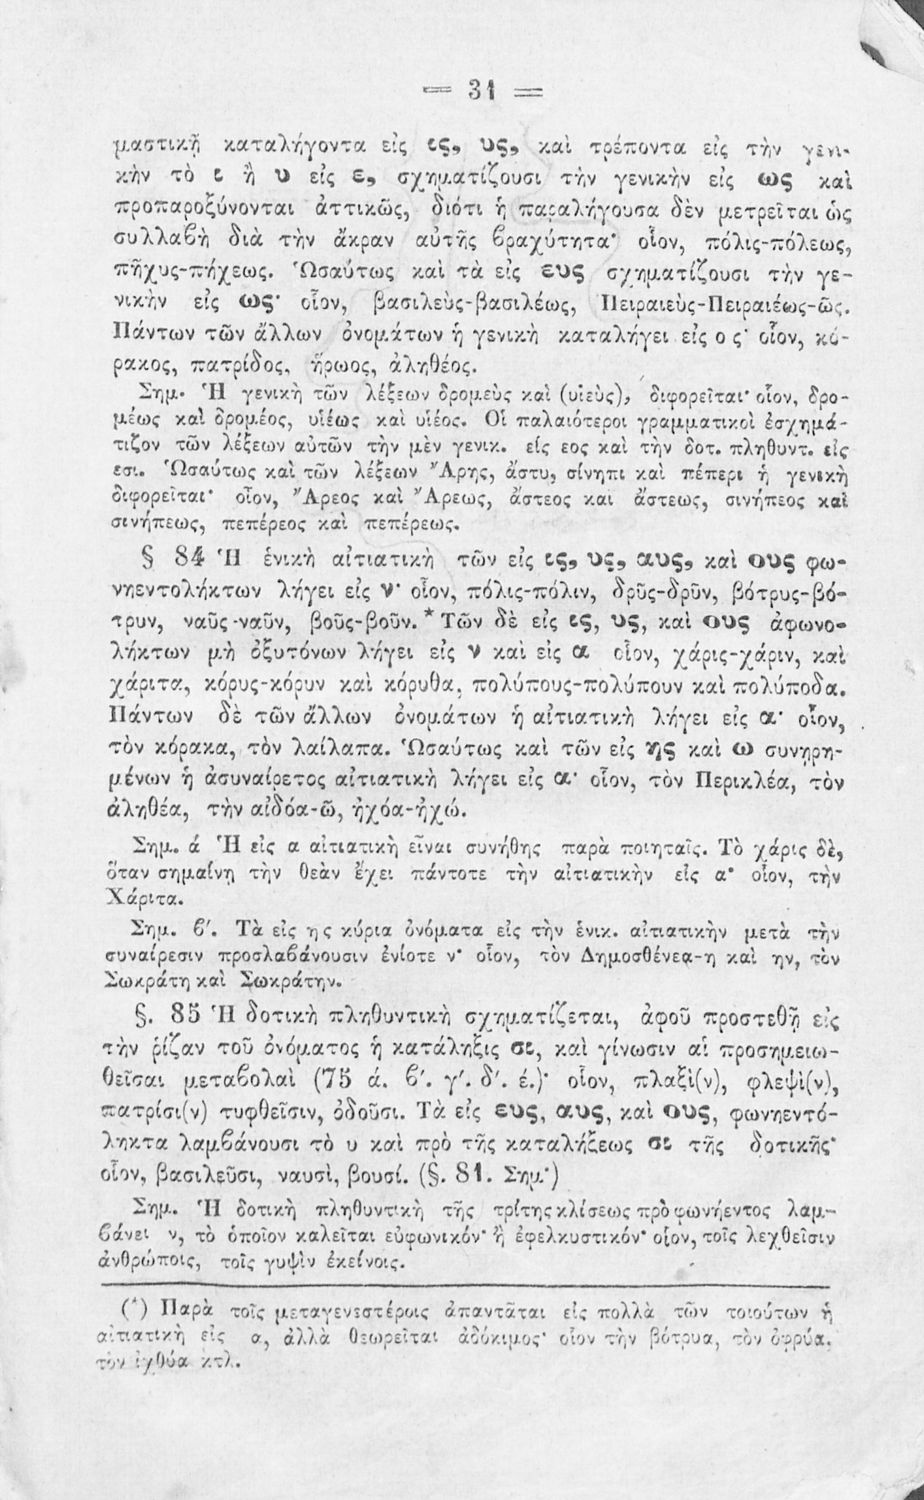 = 31 =
μαστικῇ καταλήγοντα εἰς ις, υς, καὶ τρέποντα εἰς τὴν γενι-
κὴν τὸ ι ἢ υ εἰς ε, σχηματίζουσι τὴν γενικὴν εἰς ως καὶ
προπαροξύνονται ἀττικῶς, διότι ἡ παραλήγουσα δὲν μετρεῖται ὡς
συλλαβὴ διὰ τὴν ἄκραν αὐτῆς βραχύτητα· οἷον, πόλις-πόλεως,
πῆχυς-πήχεως. Ὡσαύτως καὶ τὰ εἰς ευς σχηματίζουσι τὴν γε-
νικὴν εἰς ως· οἷον, βασιλεὺς-βασιλέως, Πειραιεὺς-Πειραιέως-ῶς.
Πάντων τῶν ἄλλων ὀνομάτων ἡ γενικὴ καταλήγει εἰς ο ς· οἷον, κό-
ρακος, πατρίδος, ἥρωος, ἀληθέος.
Σημ. Ἡ γενικὴ τῶν λέξεων δρομεὺς καὶ (υἱεὺς), διφορεῖται· οἷον, δρο-
μέως καὶ δρομέος, υἱέως καὶ υἱέος. Οἱ παλαιότεροι γραμματικοὶ ἐσχημά-
τιζον τῶν λέξεων αὐτῶν τὴν μὲν γενικ. εἰς εος καὶ τὴν δοτ. πληθυντ. εἰς
εσι. Ὡσαύτως καὶ τῶν λέξεων Ἄρης, ἄστυ, σίνηπι καὶ πέπερι ἡ γενικὴ
διφορεῖται· οἷον, Ἄρεος καὶ Ἄρεως, ἄστεος καὶ ἄστεως, σινήπεος καὶ
σινήπεως, πεπέρεος καὶ πεπέρεως.
§ 84 Ἡ ἑνικὴ αἰτιατικὴ τῶν εἰς ις, υς, αυς, καὶ ους φω-
νηεντολήκτων λήγει εἰς ν· οἷον, πόλις-πόλιν, δρῦς-δρῦν, βότρυς-βό-
τρυν, ναῦς-ναῦν, βοῦς-βοῦν.* Τῶν δὲ εἰς ις, υς, καὶ ους ἀφωνο-
λήκτων μὴ ὀξυτόνων λήγει εἰς ν καὶ εἰς α οἷον, χάρις-χάριν, καὶ
χάριτα, κόρυς-κόρυν καὶ κόρυθα, πολύπους-πολύπουν καὶ πολύποδα.
Πάντων δὲ τῶν ἄλλων ὀνομάτων ἡ αἰτιατικὴ λήγει εἰς α· οἷον,
τὸν κόρακα, τὸν λαίλαπα. Ὡσαύτως καὶ τῶν εἰς ης καὶ ω συνῃρη-
μένων ἡ ἀσυναίρετος αἰτιατικὴ λήγει εἰς α· οἷον, τὸν Περικλέα, τὸν
ἀληθέα, τὴν αἰδόα-ῶ, ἠχόα-ἠχώ.
Σημ. ά Ἡ εἰς α αἰτιατικὴ εἶναι συνήθης παρὰ ποιηταῖς. Τὸ χάρις δὲ,
ὅταν σημαίνῃ τὴν θεὰν ἔχει πάντοτε τὴν αἰτιατικὴν εἰς α· οἷον, τὴν
Χάριτα.
Σημ. β΄. Τὰ εἰς ης κύρια ὀνόματα εἰς τὴν ἑνικ. αἰτιατικὴν μετὰ τὴν
συναίρεσιν προσλαβάνουσιν ἐνίοτε ν· οἷον, τὸν Δημοσθένεα-η καὶ ην, τὸν
Σωκράτη καὶ Σωκράτην.
§. 85 Ἡ δοτικὴ πληθυντικὴ σχηματίζεται, ἀφοῦ προστεθῇ εἰς
τὴν ῥίζαν τοῦ ὀνόματος ἡ κατάληξις σι, καὶ γίνωσιν αἱ προσημειω-
θεῖσαι μεταβολαὶ (75 ά. β΄. γ΄. δ΄. έ.)· οἷον, πλαξὶ(ν), φλεψὶ(ν),
πατρίσι(ν) τυφθεῖσιν, ὀδοῦσι. Τὰ εἰς ευς, αυς, καὶ ους, φωνηεντό-
ληκτα λαμβάνουσι τὸ υ καὶ πρὸ τῆς καταλήξεως σι τῆς δοτικῆς·
οἷον, βασιλεῦσι, ναυσὶ, βουσί. (§. 81. Σημ·)
Σημ. Ἡ δοτικὴ πληθυντικὴ τῆς τρίτης κλίσεως πρὸ φωνήεντος λαμ-
βάνει ν, τὸ ὁποῖον καλεῖται εὐφωνικόν· ἢ ἐφελκυστικόν· οἷον, τοῖς λεχθεῖσιν
ἀνθρώποις, τοῖς γυψὶν ἐκείνοις.
(*) Παρὰ τοῖς μεταγενεστέροις ἀπαντᾶται εἰς πολλὰ τῶν τοιούτων ἡ
αἰτιατικὴ εἰς α, ἀλλὰ θεωρεῖται ἀδόκιμος· οἷον τὴν βότρυα, τὸν ὀφρύα,
τὸν ἰχθύα κτλ.